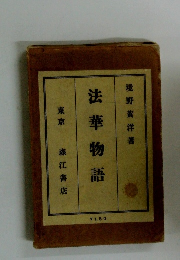 境野黄洋著
法華物語
東京 森江書店